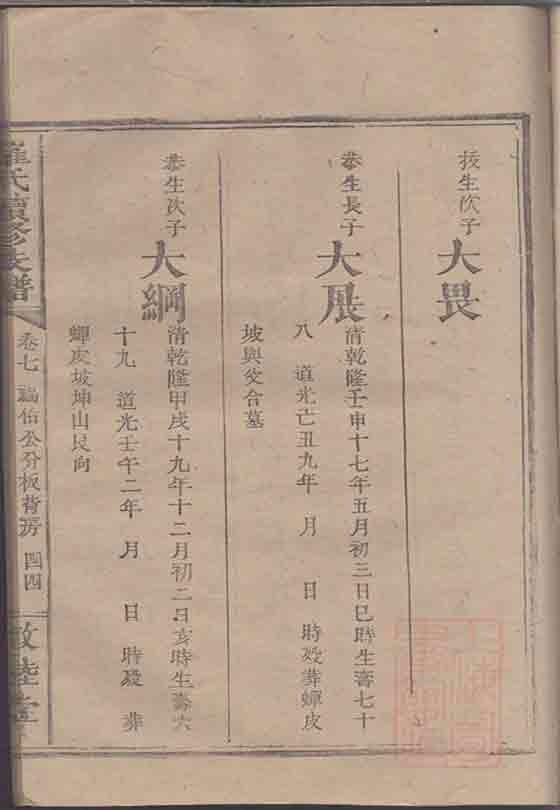 技生次子 大畏
恭生長子 大展 清乾隆壬申十七年五月初三日巳時生壽七十
八 道光己丑九年 月 日時殁葬蟬皮
坡與父合墓
恭生次子 大綱 清乾隆甲戌十九年十二月初二日亥時生壽六
十九 道光壬午二年 月 日時殁 葬
蟬皮坡坤山艮向
羅氏續修支譜
卷七 福佑公分板背房 四四
敦睦堂